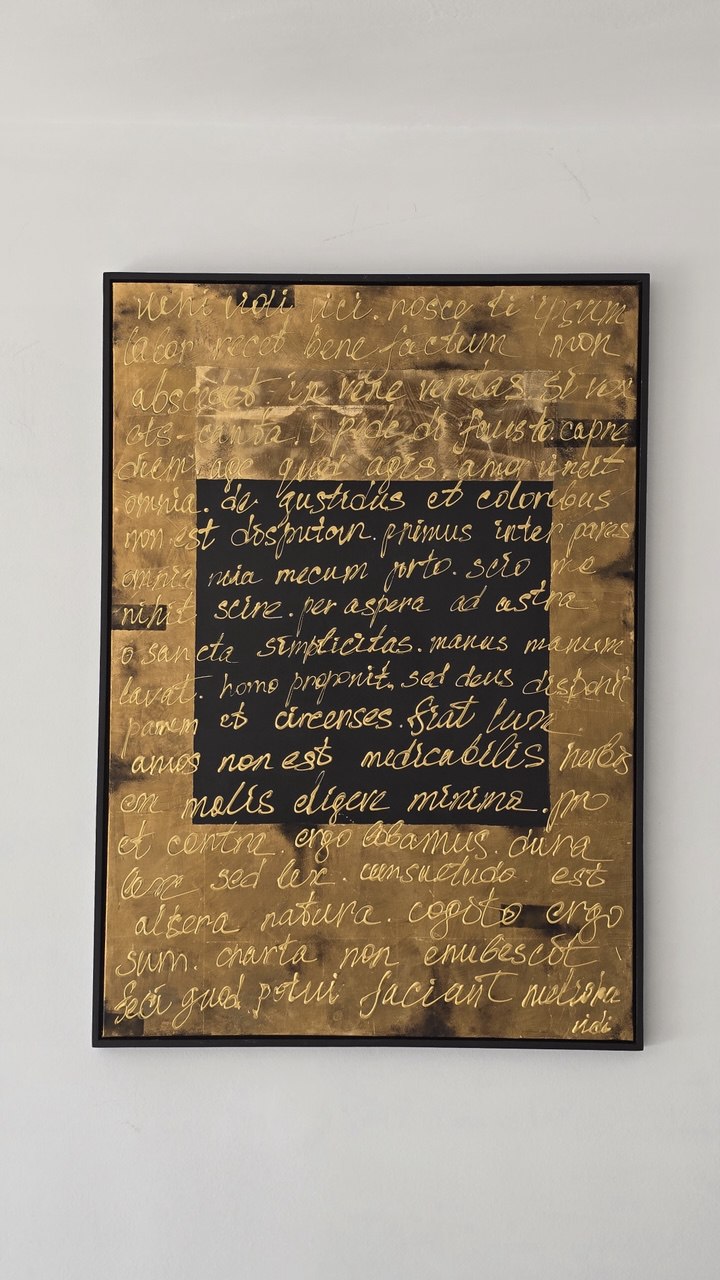 veni vidi vici. nosce ti ipsum
labor recet bene factum non
abscedet. in vine veritas. si vox
ots - canta. i pede di fausto capre
diem. age quod agis. amor vincit
omnia. de gustidus et coloribus
non est disputan. primus inter pares
omnia mia mecum porto. scio me
nihil scire. per aspera ad astra.
o sancta simplicitas. manus manum
lavat. homo proponit, sed deus disponit
panem et circenses. fiat lux.
amos non est medicabilis herbis
ex malis eligere minima. pro
et contra. ergo bibamus. dura
lex sed lex. consuetudo est
altera natura. cogito ergo
sum. charta non erubescit
feci quod potui faciant meliora
vidi